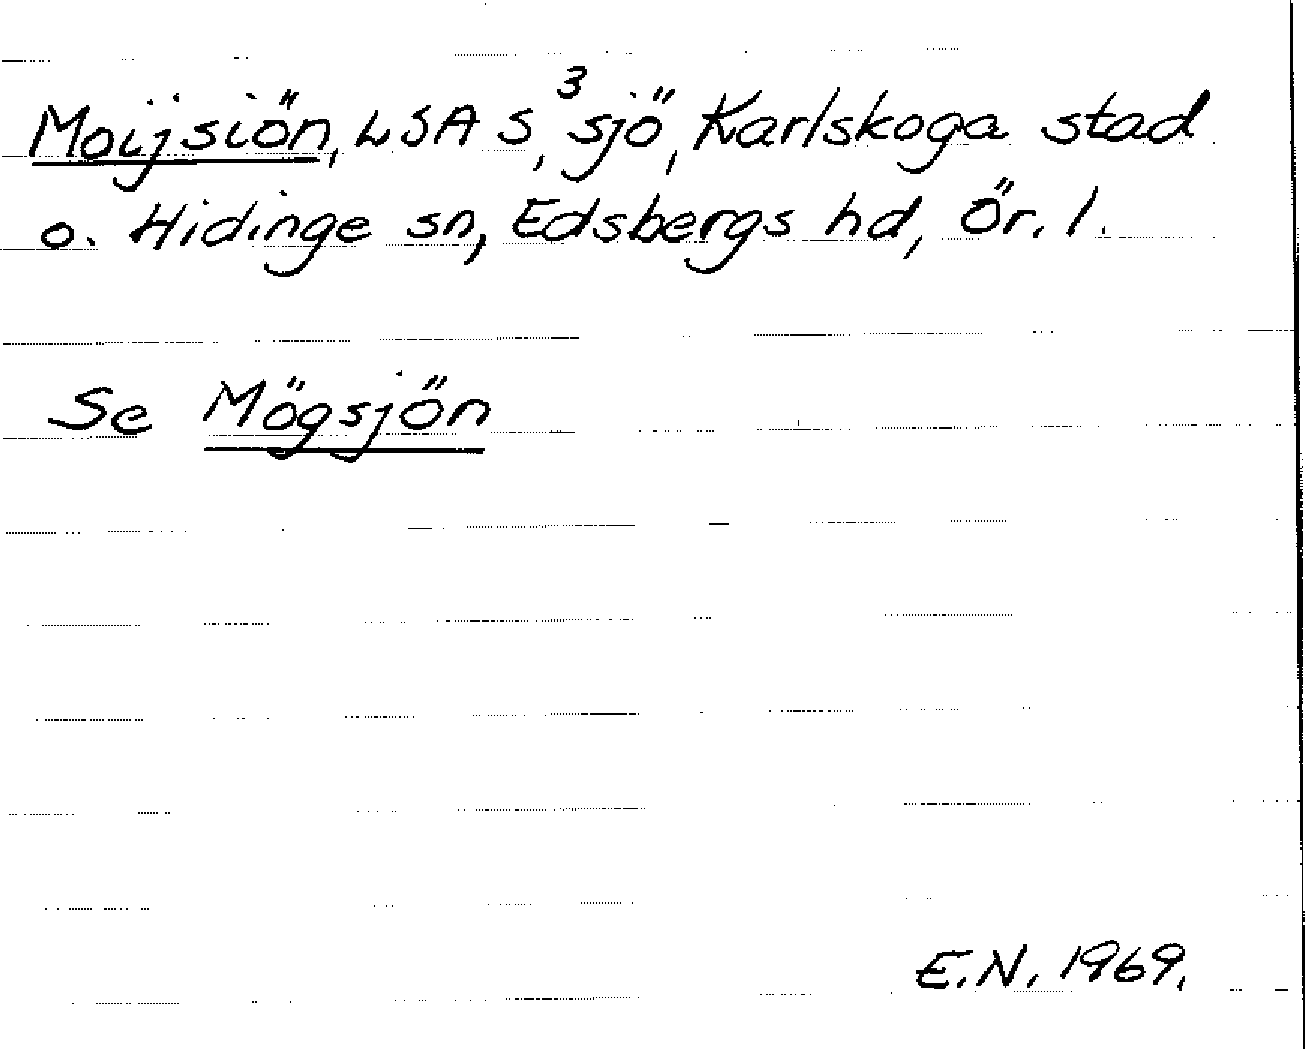 Moijsiön, LSA S, ³ sjö, Karlskoga stad
o. Hidinge sn, Edsbergs hd, Ör. l.
Se Mögsjön
E.N. 1969.